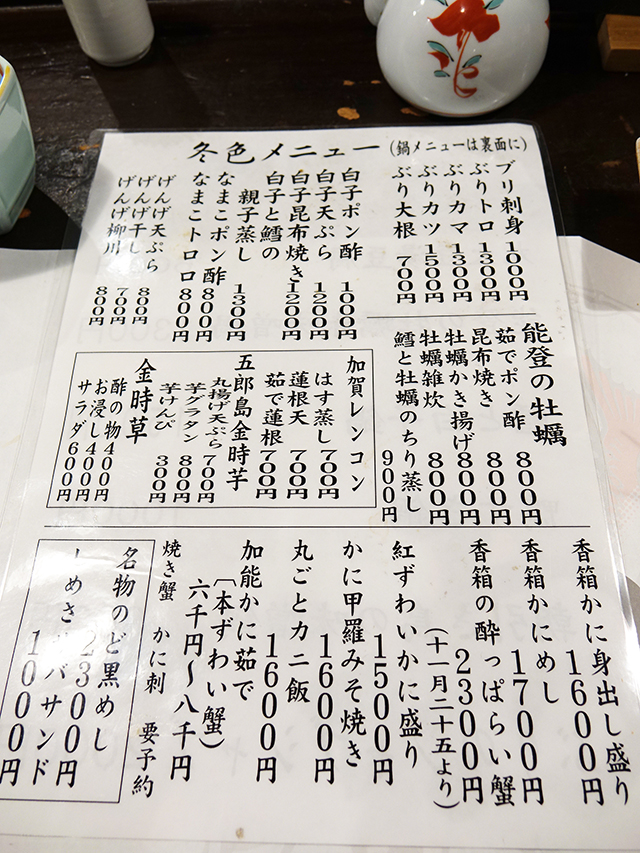 冬色メニュー(鍋メニューは裏面に)
ブリ刺身 1000円
ぶりトロ 1300円
ぶりカマ 1300円
ぶりカツ 1500円
ぶり大根 700円
白子ポン酢 1000円
白子天ぷら 1200円
白子昆布焼き 1200円
白子と鱈の
親子蒸し 1300円
なまこポン酢 800円
なまこトロロ 800円
げんげ天ぷら 800円
げんげ干し 700円
げんげ柳川 800円
能登の牡蠣
茹でポン酢 800円
昆布焼き 800円
牡蠣かき揚げ 800円
牡蠣雑炊 800円
鱈と牡蠣のちり蒸し 900円
加賀レンコン
はす蒸し 700円
蓮根天 700円
茹で蓮根 700円
五郎島金時芋
丸揚げ天ぷら 700円
芋グラタン 800円
芋けんぴ 300円
金時草
酢の物 400円
お浸し 400円
サラダ 600円
香箱かに身出し盛り 1600円
香箱かにめし 1700円
香箱の酔っぱらい蟹 2300円
(十一月二十五より)
紅ずわいかに盛り 1500円
かに甲羅みそ焼き 1600円
丸ごとカニ飯 1600円
加能かに茹で
(本ずわい蟹)
六千円〜八千円
焼き蟹 かに刺 要予約
名物のど黒めし 2300円
しめさバサンド 1000円